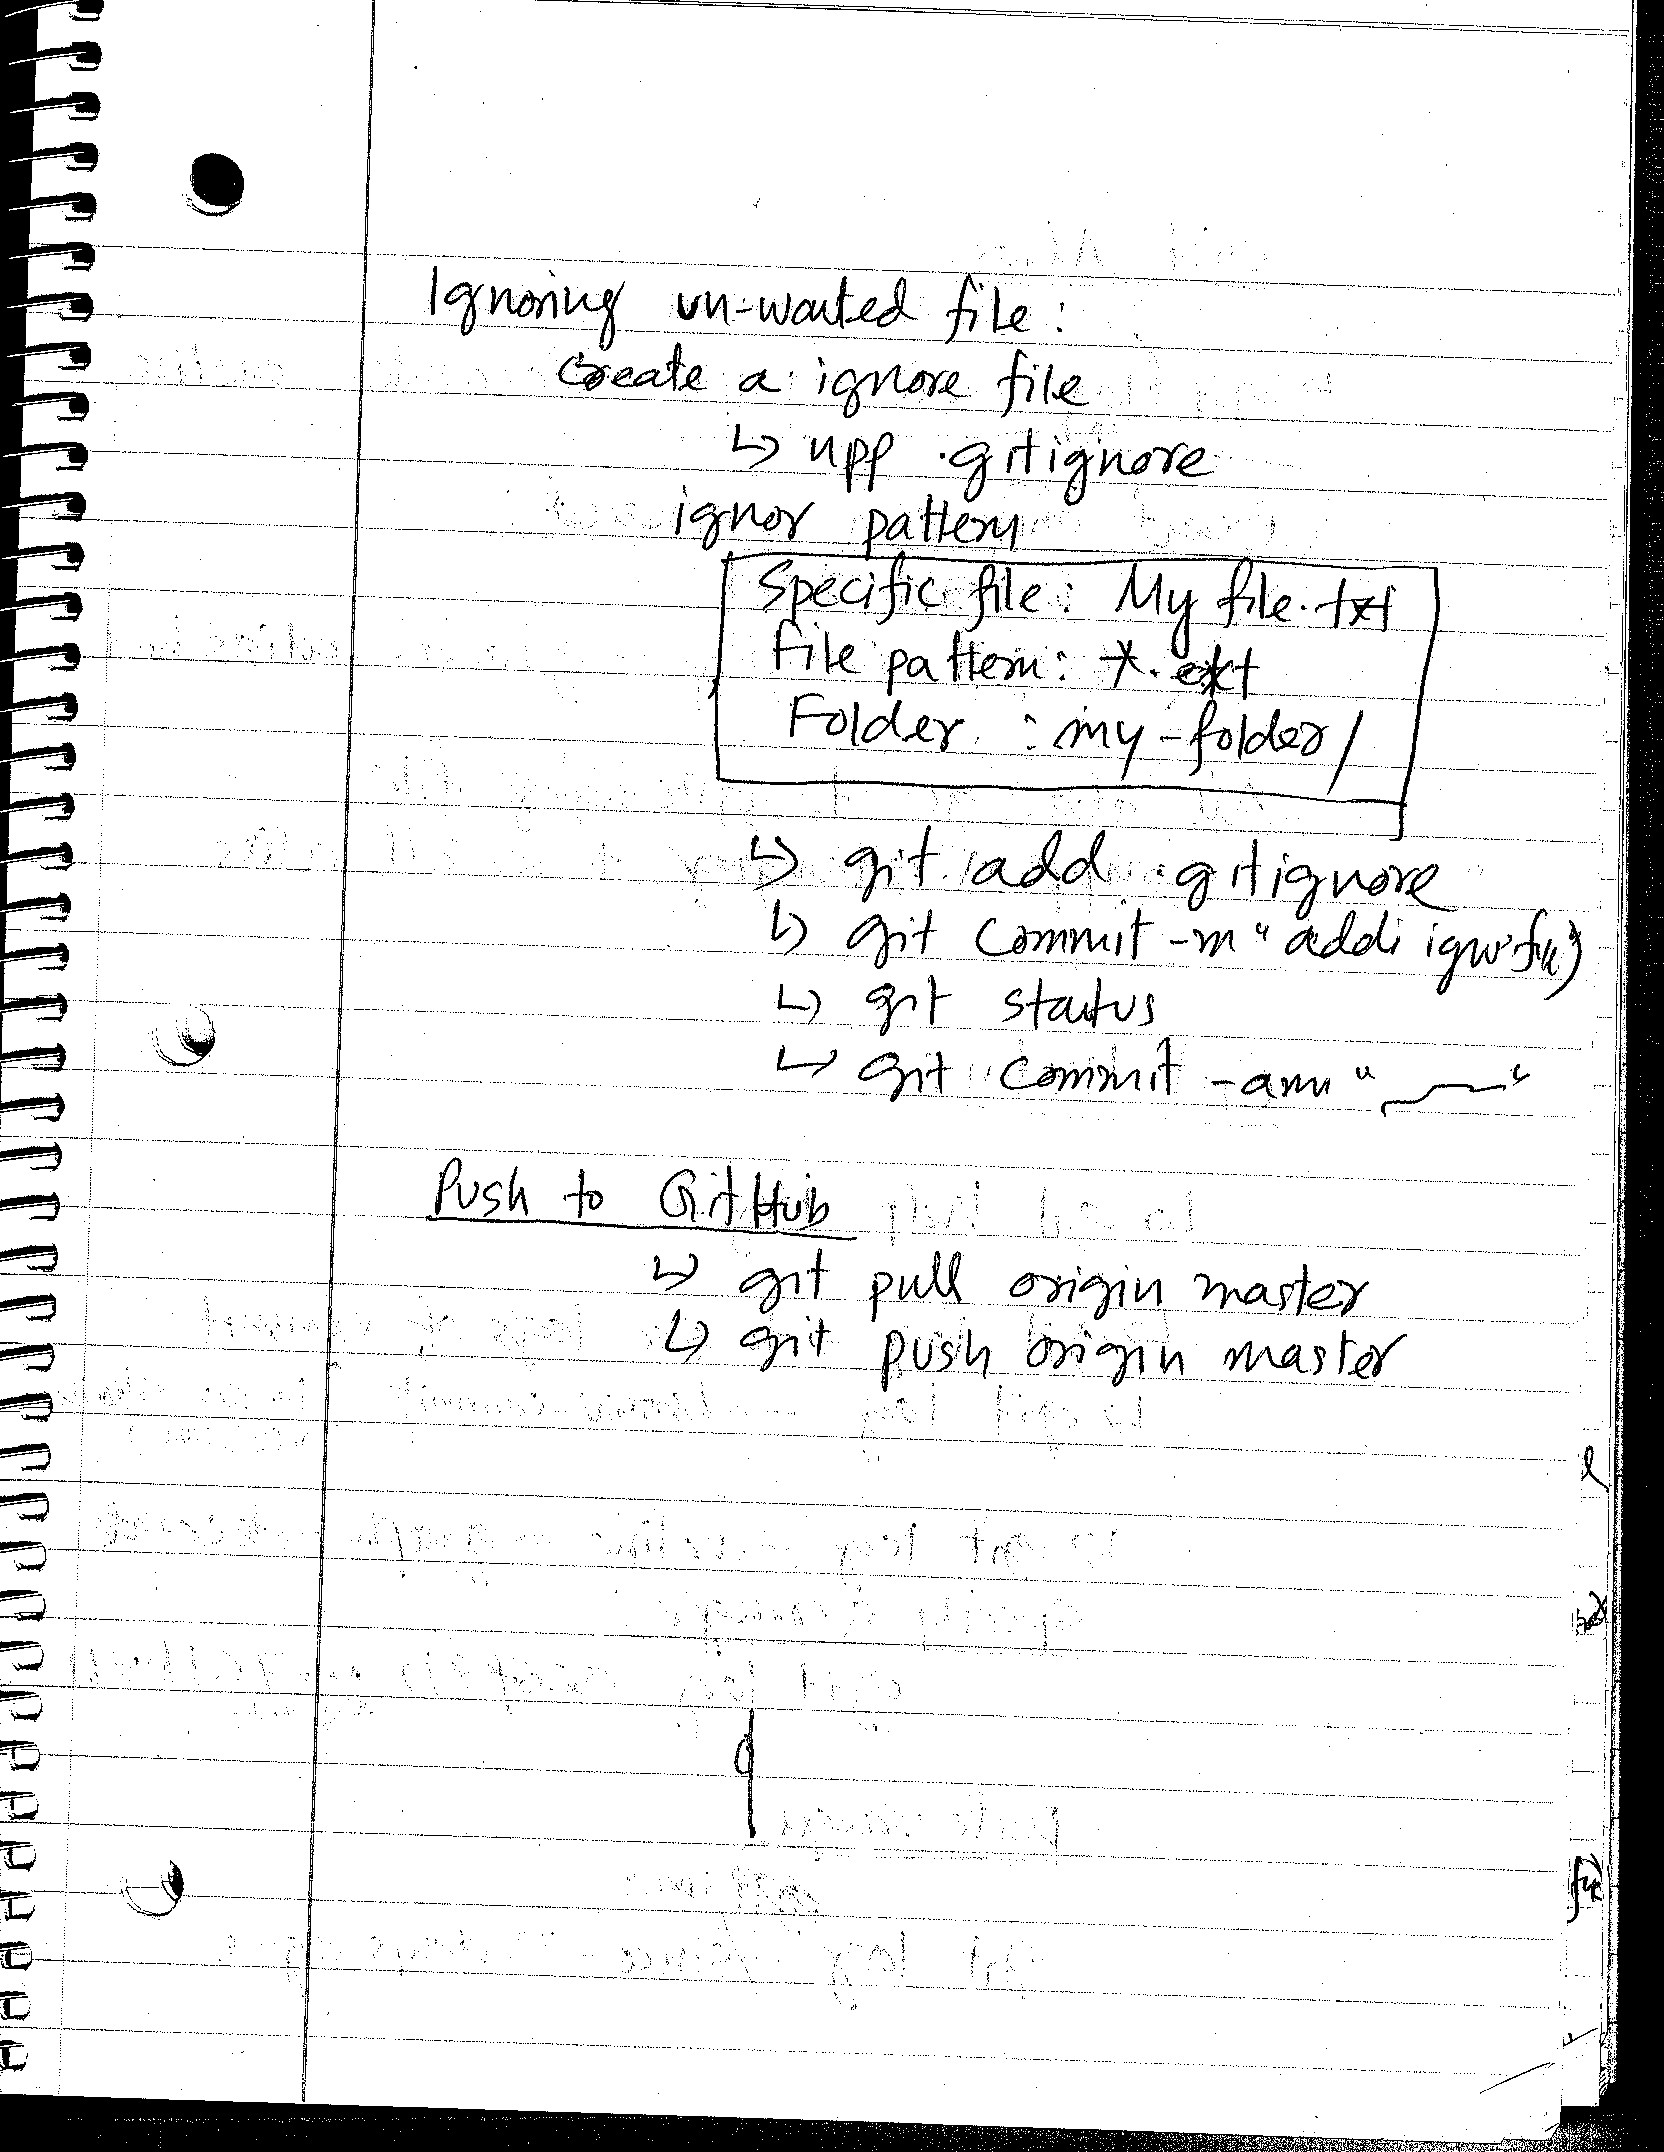 Ignoring un-wanted file:
Create a ignore file
↳ npp .gitignore
ignor pattern
Specific file: My file.txt
file pattern: *.ext
Folder : my-folder/
↳ git add .gitignore
↳ git commit -m "
↳ git status
↳ git commit -am " "
Push to GitHub
↳ git pull origin master
↳ git push origin master